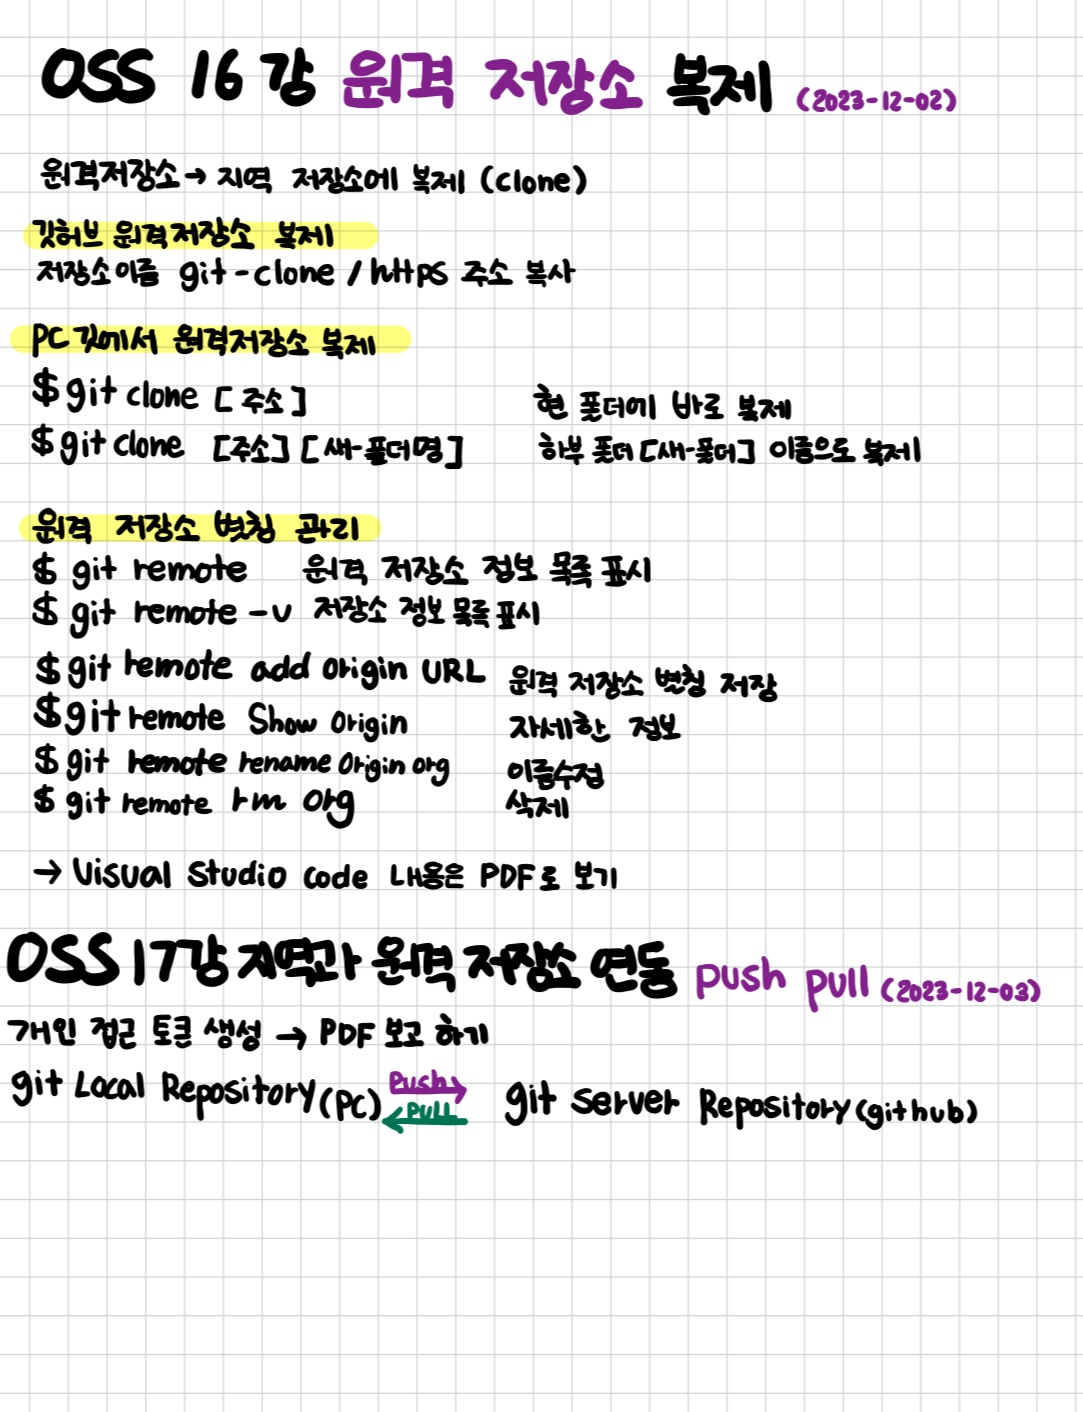 OSS 16강 원격 저장소 복제 (2023-12-02)
원격저장소 → 지역 저장소에 복제 (clone)
깃허브 원격저장소 복제
저장소이름 git-clone / https 주소 복사
PC 깃에서 원격저장소 복제
$ git clone [주소] 현 폴더에 바로 복제
$ git clone [주소] [새-폴더명] 하부 폴더 [새-폴더] 이름으로 복제
원격 저장소 별칭 관리
$ git remote 원격 저장소 정보 목록 표시
$ git remote -v 저장소 정보 목록 표시
$ git remote add origin URL 원격 저장소 별칭 저장
$ git remote Show origin 자세한 정보
$ git remote rename origin org 이름수정
$ git remote rm org 삭제
→ Visual Studio code 내용은 PDF로 보기
OSS 17강 지역과 원격 저장소 연동 push pull (2023-12-03)
개인 접근 토큰 생성 → PDF 보고 하기
git Local Repository (PC) push pull git server Repository (github)